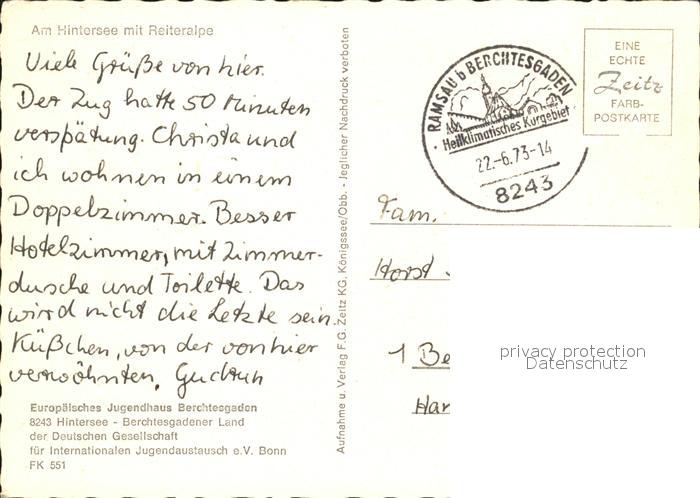 Am Hintersee mit Reiteralpe
Viele Grüße von hier.
Der Zug hatte 50 Minuten
verspätung. Christa und
ich wohnen in einem
Doppelzimmer. Besser
Hotelzimmer, mit Zimmer-
dusche und Toilette. Das
wird nicht die Letzte sein.
Küßchen, von der von hier
verwöhnten, Gudrun
Europäisches Jugendhaus Berchtesgaden
8243 Hintersee - Berchtesgadener Land
der Deutschen Gesellschaft
für Internationalen Jugendaustausch e.V. Bonn
FK 551
Aufnahme u. Verlag F.G. Zeitz KG., Königssee/Obb. - Jeglicher Nachdruck verboten
RAMSAU b BERCHTESGADEN
Heilklimatisches Kurgebiet
22.-6.73-14
8243
EINE
ECHTE
Zeitz
FARB-
POSTKARTE
Fam.
Horst
1 Be
Har
privacy protection
Datenschutz